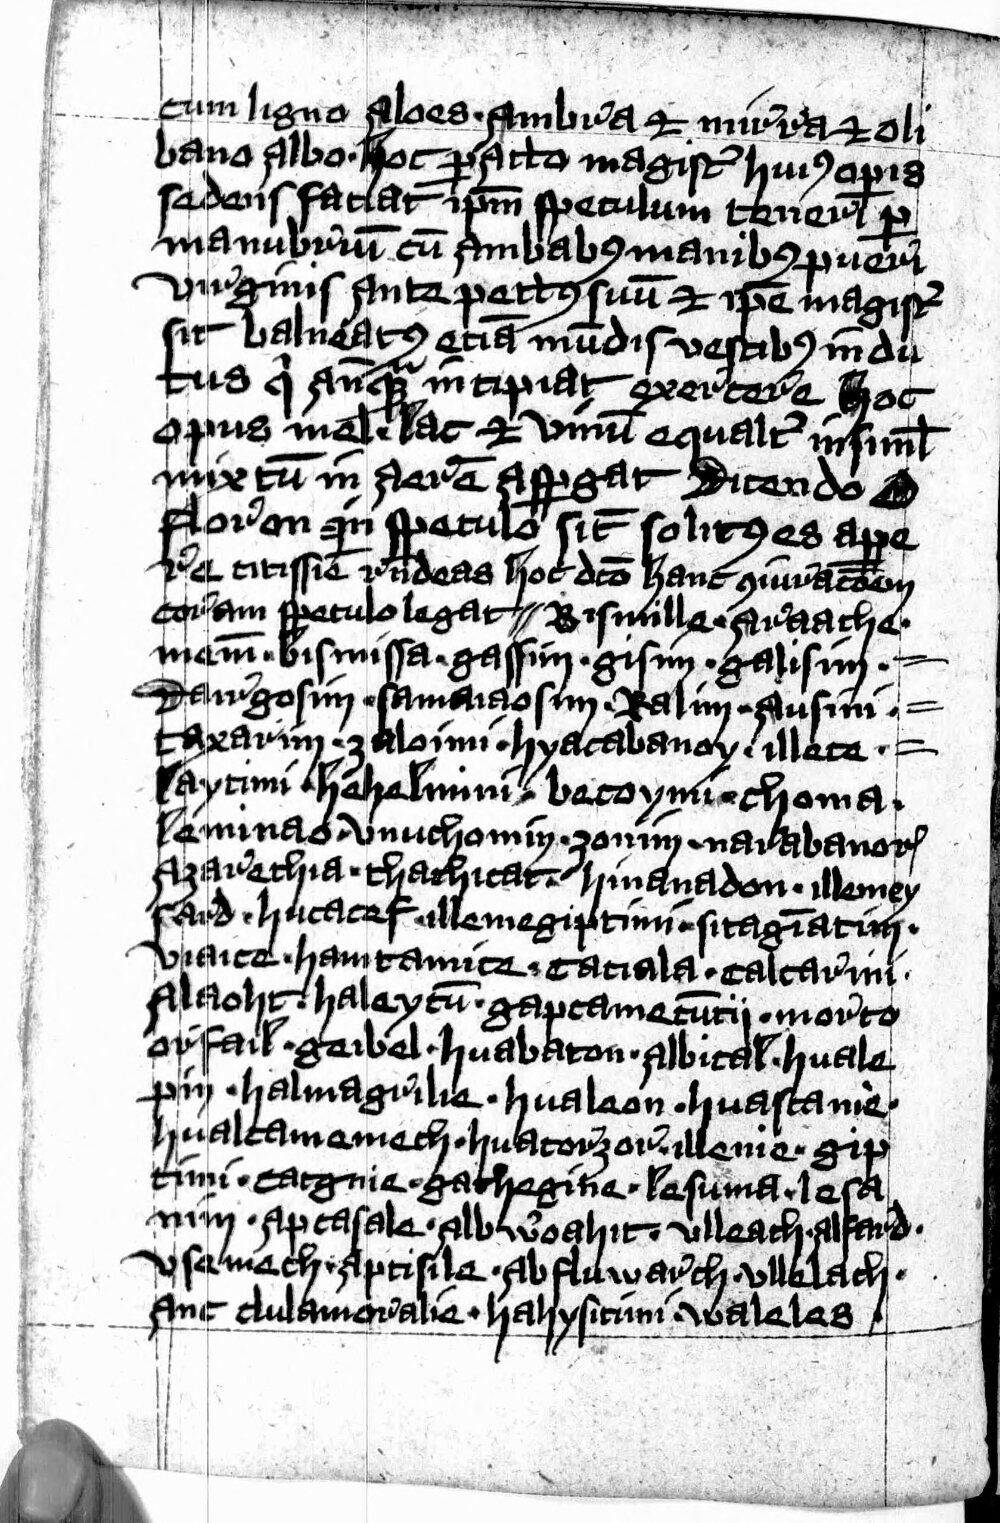 cum ligno Aloes · Ambra et mirra et oli
bano albo · hoc ꝑacto magist̃ huiꝰ oꝑis
sedens faciat ip̄m speculum teneri ꝑ
manubriū cū ambabꝰ manibꝰ pueri
virginis ante pectꝰ suū et ip̄e magist̃
sit balneatꝰ eciā mūdis vestibꝰ indu
tus incipiat exercere hoc
opus mel · lac et vinū equalt̃ insiml̄
mixtū in aerē asꝑgat Dicendo O
floron in speculo sit̄ solitꝰ es appe
re citissīe rn̄deas hoc dc̄o hanc ꝯiurac̄oēm
coram speculo legat // Bismille · Araache ·
mem̄ · bismissa · gassim · gisim · galisim · =
Dargosim · samaiaosim · Ralim · Ausini · =
taxarim · zaloimi · hyacabanoy · illete · =
laytimi · hehelmini · betoymi · choma ·
leminao · vnuchomin · zonim · narabanor
Azarethia · thathitat · hinanadon · illemey
fard · hucatef · illemegiptimi · sitagīatim ·
viaice · hamtamice · tatiala · caltarini ·
Alaoht · haleytū · gaptametūtij · morto
orfail · geibel · huabaton · albital · huale
pin · halmagrilie · hualeon · huastanie ·
hualtamemech · huatorzor · illenie · gip
timi · catgnie · gathegine · lesuma · lesa
nim · aptasale · albwoahit · vlleach · alfard ·
vsemech · aptisile · abfluwarch · vllelach ·
anc dulamoralie · hahysitimi · waleles ·